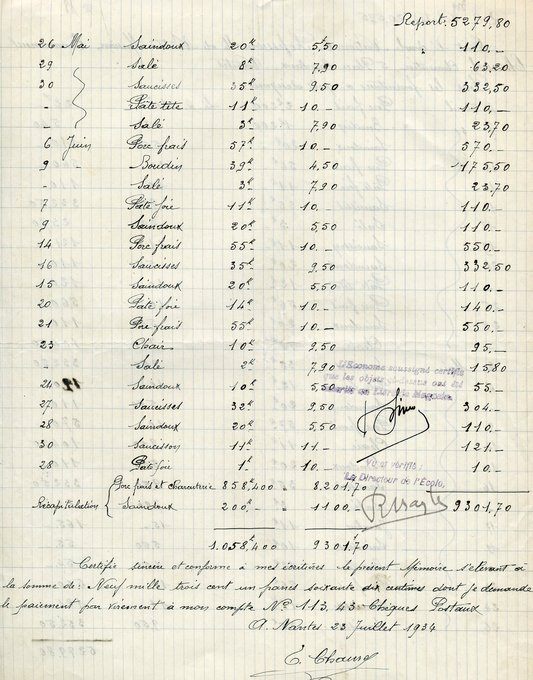 Report. 5279,80
26 Mai Saindoux 20k 5,50 110.-
29 Salé 8k 7,90 63,20
30 Saucisses 35k 9,50 332,50
- Pate tête 11k 10.- 110.-
- Salé 3k 7,90 23,70
6 Juin Porc frais 57k 10.- 570.-
9 Boudin 39k 4,50 175,50
- Salé 3k 7,90 23,70
7 Pate foie 11k 10.- 110.-
9 Saindoux 20k 5,50 110.-
14 Porc frais 55k 10.- 550.-
16 Saucisses 35k 9,50 332,50
15 Saindoux 20k 5,50 110.-
20 Paté foie 14k 10.- 140.-
21 Porc frais 55k 10.- 550.-
23 Chair 10k 9,50 95.-
- Salé 2k 7,90 15,80
24 Saindoux 10k 5,50 55.-
27 Saucisses 32k 9,50 304.-
28 Saindoux 20k 5,50 110.-
30 Saucisson 11k 11.- 121.-
28 Pate foie 1k 10.- 10.-
L'Econome soussigné certifie
que les objets ont été
Vu et vérifié:
Le Directeur de l'Ecole,
Porc frais et Charcuterie 858k,400 8.201,70
Récapitulation Saindoux 200k.- 1100.- 9301,70
1.058k,400 9301,70
Certifié sincère et conforme à mes écritures le présent Mémoire s'élevant à
la somme de: Neuf mille trois cent un francs soixante dix centimes dont je demande
le paiement par virement à mon compte No 113.43 Chèques Postaux
A Nantes 23 Juillet 1934